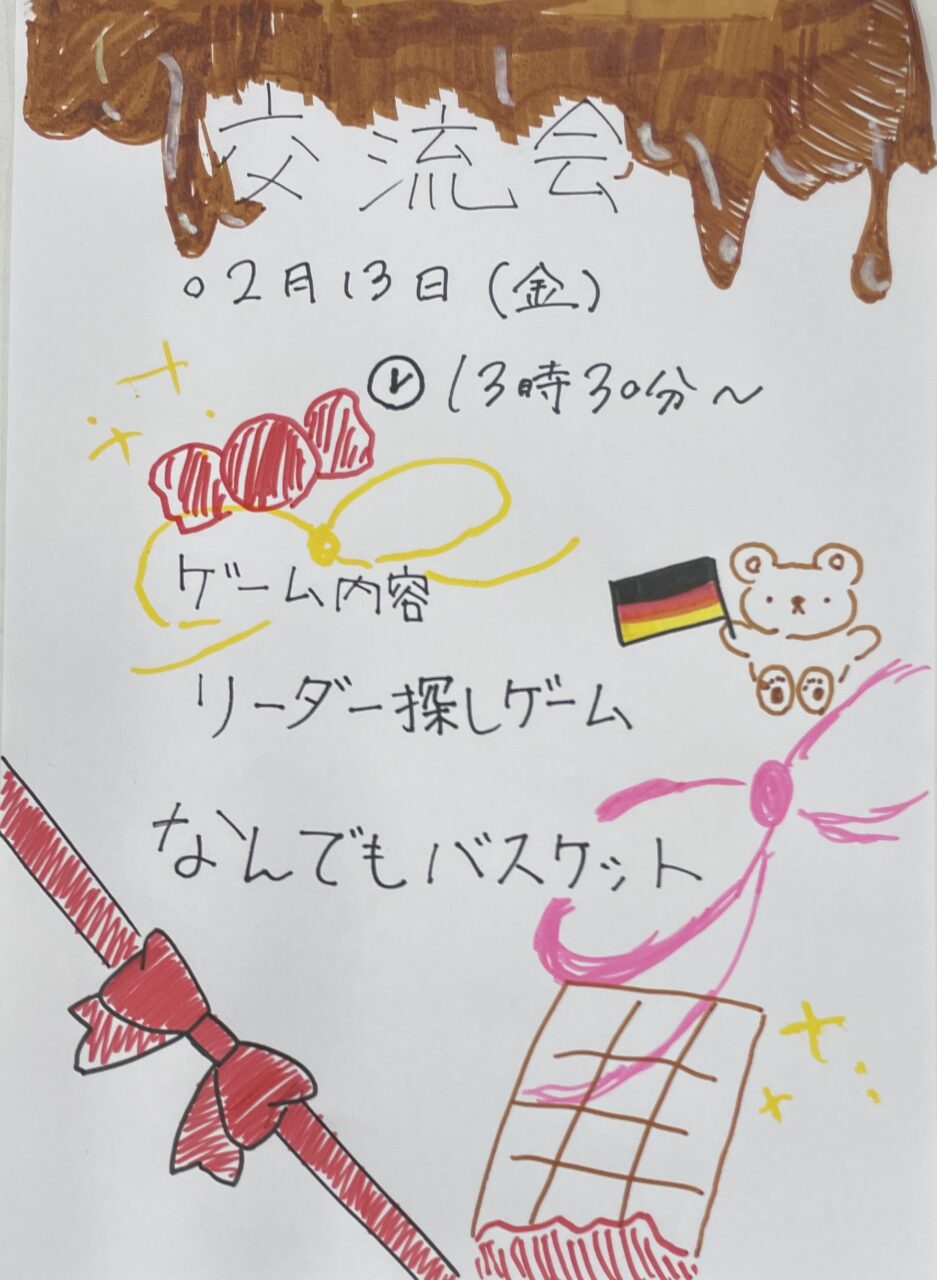 交流会
○2月13日(金)
13時30分～
ゲーム内容
リーダー探しゲーム
なんでもバスケット